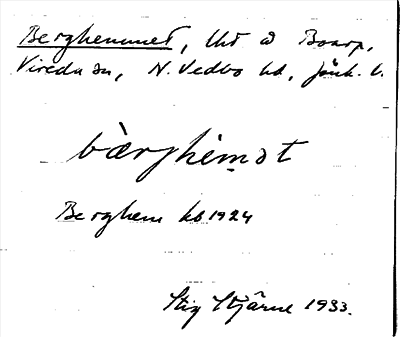 Berghemmet, lht å Boarp,
Vireda sn, N. Vedbo hd, Jönk. l.
bàrjhèmət
Berghem kb 1924
Stig Stjärne 1933.